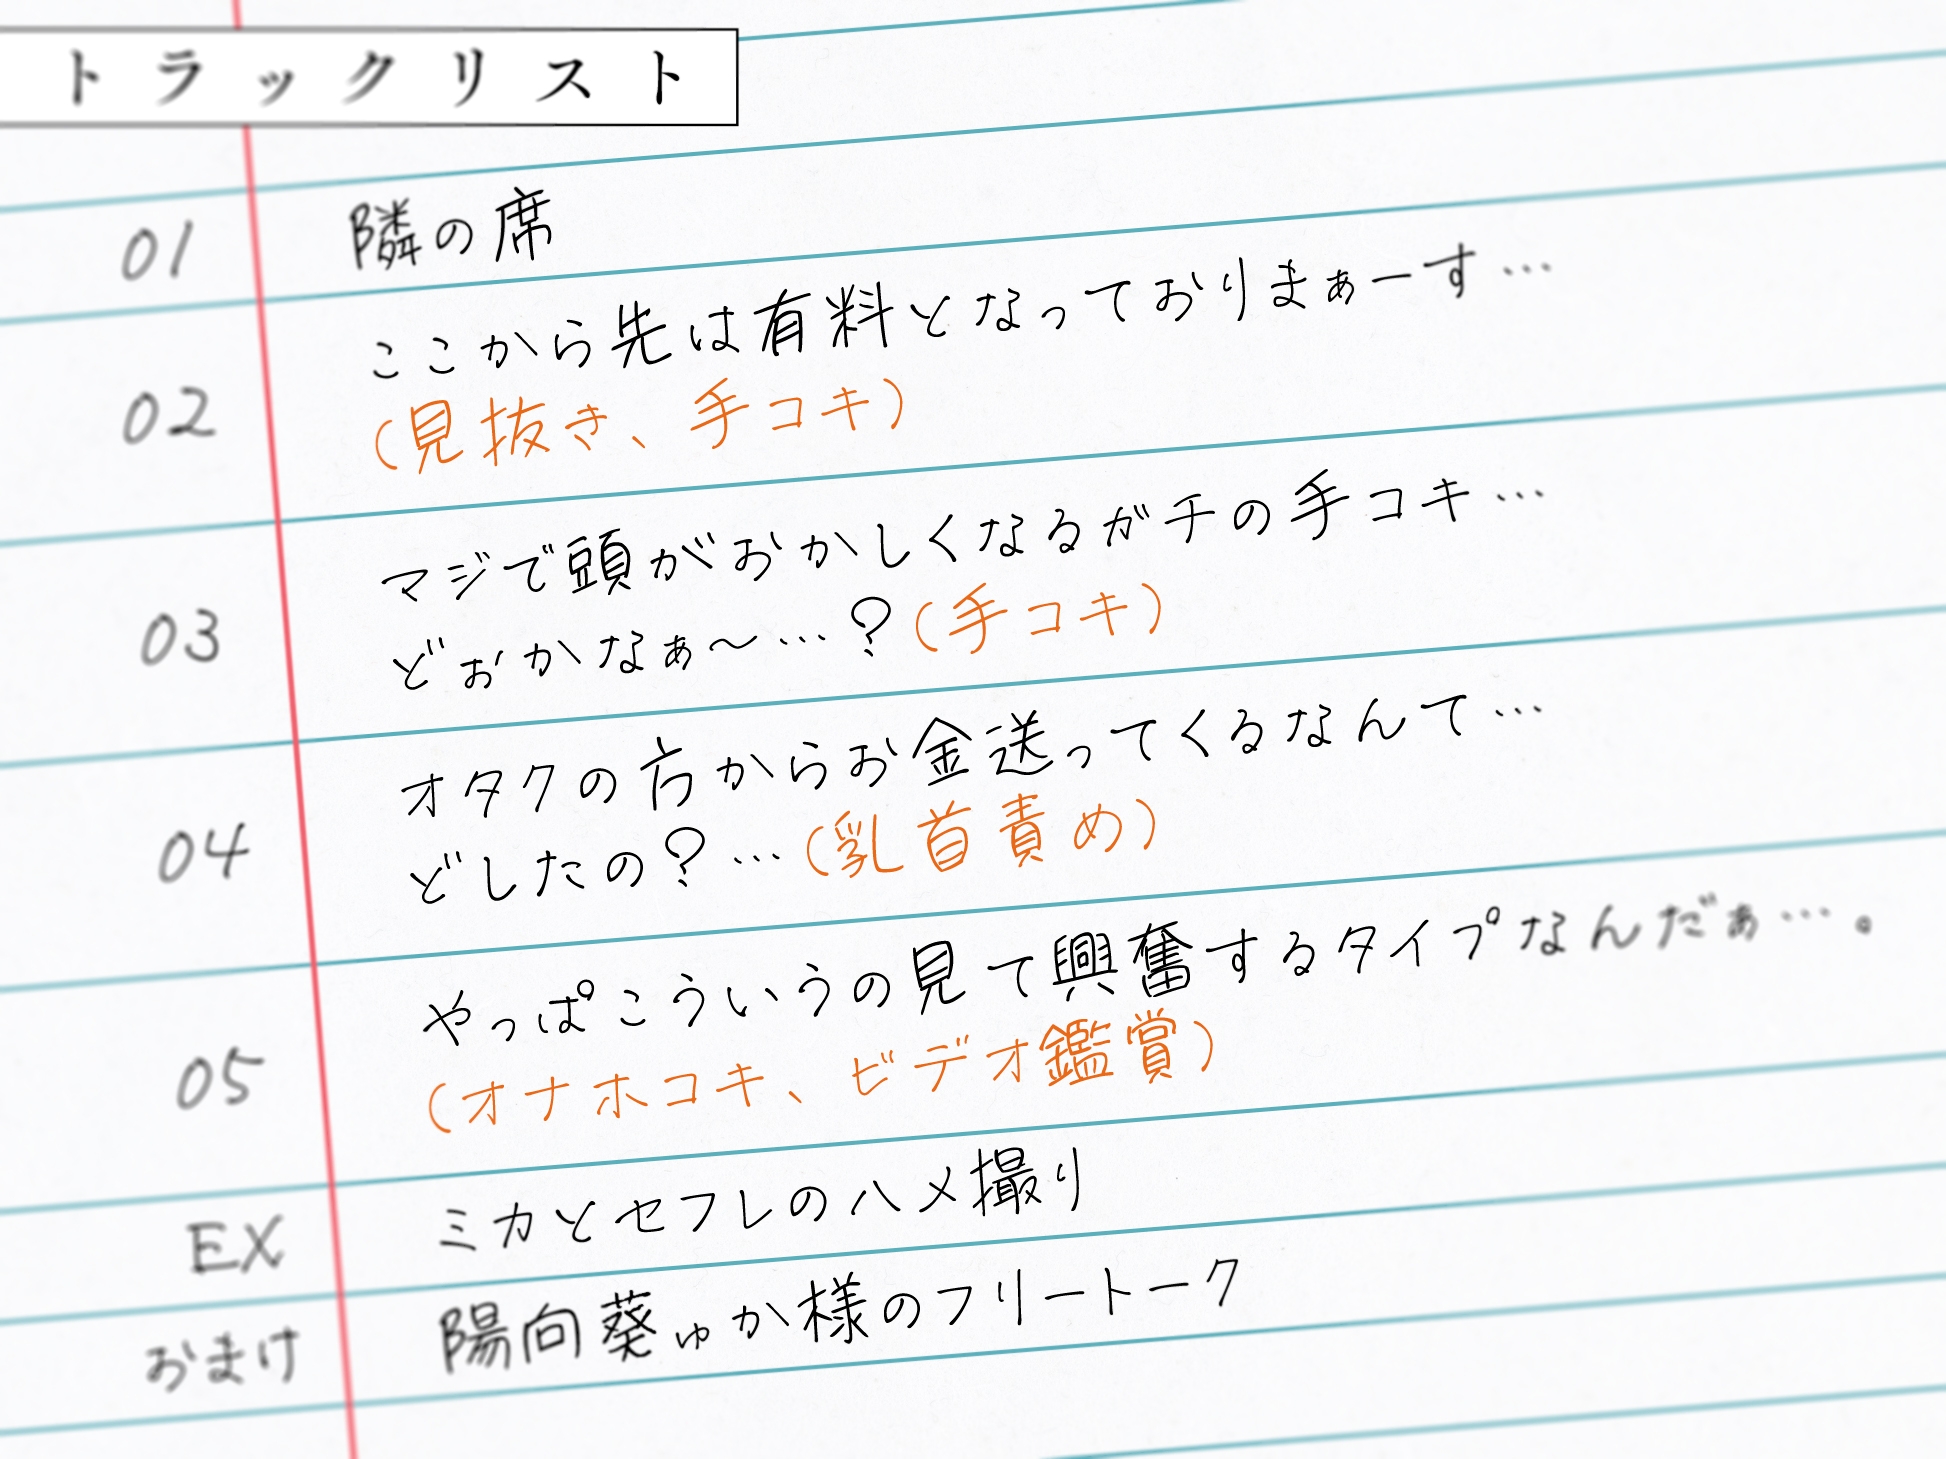 トラックリスト
01 隣の席
02 ここから先は有料となっておりまぁーす…
(見抜き、手コキ)
03 マジで頭がおかしくなるガチの手コキ…
どぉかなぁ～…?(手コキ)
04 オタクの方からお金送ってくるなんて…
どしたの?…(乳首責め)
05 やっぱこういうの見て興奮するタイプなんだぁ…。
(オナホコキ、ビデオ鑑賞)
EX ミカとセフレのハメ撮り
おまけ 陽向葵ゅか様のフリートーク